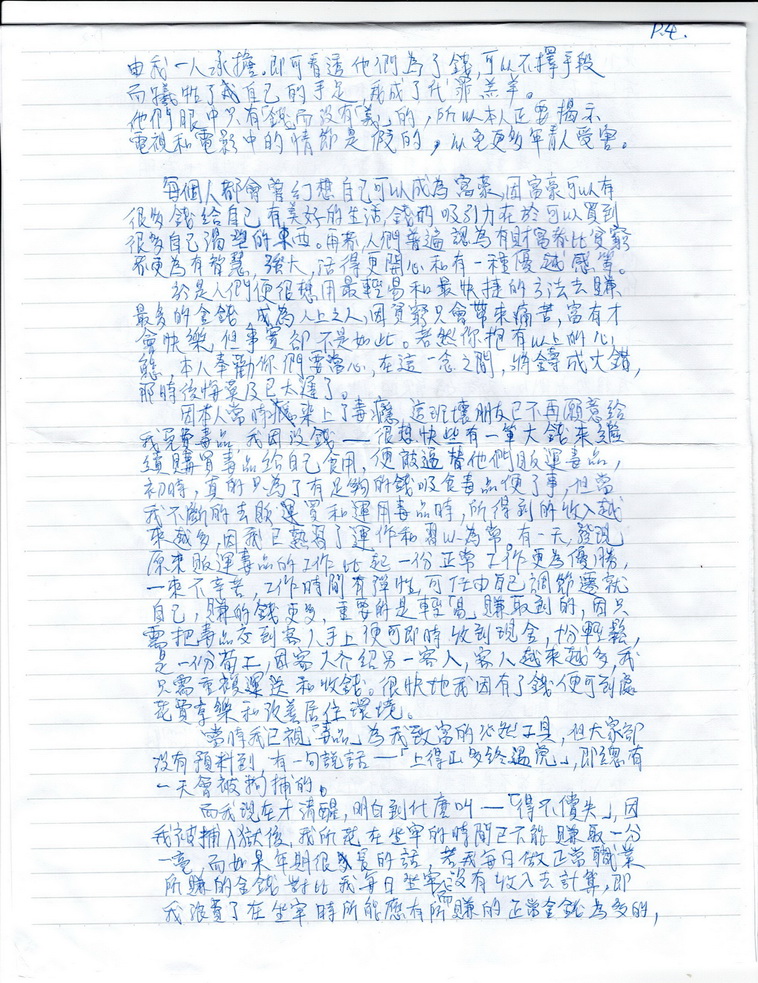 P.4.
由我一人承擔。即可看透他們為了錢,可以不擇手段
而犧牲了我自己的手足,我成了代罪羔羊。
他們眼中只有「錢」而沒有「義」的,所以本人正要揭示
電視和電影中的情節是假的,以免更多年青人受害。
每個人都會曾幻想自己可以成為富豪,因富豪可以有
很多錢給自己有美好的生活,錢的吸引力在於可以買到
很多自己渴望的東西。再者人們普遍認為有財富者比貧窮
者更為有智慧,強大,活得更開心和有一種優越感等。
於是人們便很想用最輕易和最快捷的方法去賺
最多的金錢,成為人上之人,因貧窮只會帶來痛苦,富有才
會快樂,但事實卻不是如此。若然你抱有以上的心
態,本人奉勸你們要當心,在這一念之間,將鑄成大錯,
那時後悔莫及已太遲了。
因本人當時癮來上了毒癮,這班壞朋友已不再願意給
我免費毒品,我因沒錢——很想快些有一筆大錢來繼
續購買毒品給自己食用,便被逼替他們販運毒品,
初時,真的只為了有足夠的錢吸食毒品便了事,但當
我不斷的去販運買和運用毒品時,所得到的收入越
來越多,因我已熟習了運作和習以為常,有一天,發現
原來販運毒品的工作比起一份正常工作更為優勝,
一來不辛苦,工作時間有彈性,可任由自己調節遷就
自己,賺的錢更多,重要的是輕「易」賺取到的,因只
需把毒品交到客人手上便可即時收到現金,份輕鬆,
是一份荀工,因客人介紹另一客人,客人越來越多,我
只需重複運送和收錢。很快地我因有了錢便可到處
花費享樂和改善居住環境。
當時我已視「毒品」為我致富的必然工具,但大家都
沒有預料到,有一句說話—「上得山多終遇虎」,即總有
一天會被拘捕的。
而我現在才清醒,明白到什麼叫—「得不償失」,因
我被捕入獄後,我所花在坐牢的時間已不能賺取一分
一毫,而如果年期很長的話,若我每日做正常職業
所賺的金錢對比我每日坐牢沒有收入去計算,即
我浪費了在坐牢時所能應有所需賺的正常金錢為多的,